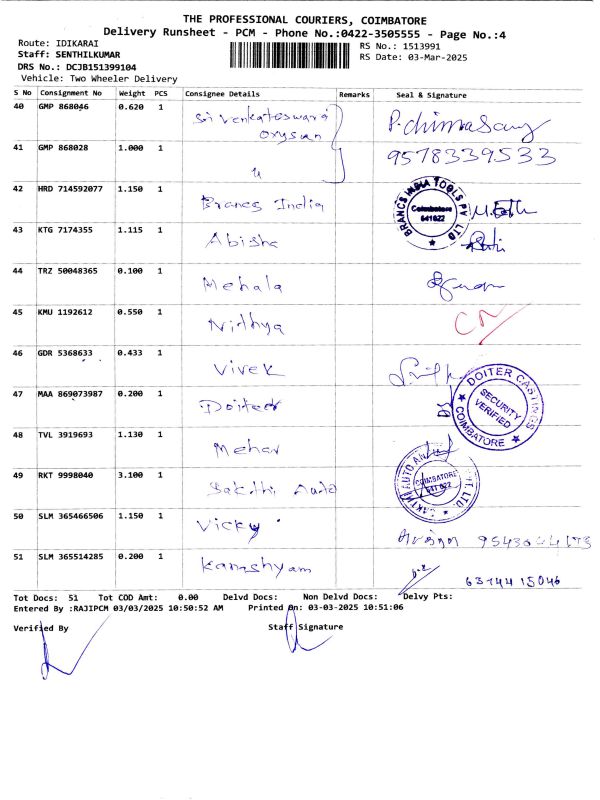 THE PROFESSIONAL COURIERS, COIMBATORE
Delivery Runsheet - PCM - Phone No.:0422-3505555 - Page No.:4
Route: IDIKARAI
RS No.: 1513991
Staff: SENTHILKUMAR
RS Date: 03-Mar-2025
DRS No.: DCJB151399104
Vehicle: Two Wheeler Delivery
S No Consignment No Weight PCS Consignee Details Remarks Seal & Signature
40 GMP 868046 0.620 1 Sri Venkateswara
9578339533
41 GMP 868028 1.000 1 "
42 HRD 714592077 1.150 1 Brancs India
BRANCS INDIA TOOLS PV LTD
Coimbatore
641022
43 KTG 7174355 1.115 1 Abisha
44 TRZ 50048365 0.100 1 Mehala
45 KMU 1192612 0.550 1 Nidhya
46 GDR 5368633 0.433 1 Vivek
DOITER CASTINGS
SECURITY
VERIFIED
COIMBATORE
47 MAA 869073987 0.200 1 Doiter
48 TVL 3919693 1.130 1 Mehar
49 RKT 9998040 3.100 1 Sakthi Auto
COIMBATORE
641 022
50 SLM 365466506 1.150 1 Vicky
51 SLM 365514285 0.200 1 Kanishyam
Tot Docs: 51 Tot COD Amt: 0.00 Delvd Docs: Non Delvd Docs: Delvy Pts:
Entered By :RAJIPCM 03/03/2025 10:50:52 AM Printed On: 03-03-2025 10:51:06
Verified By Staff Signature